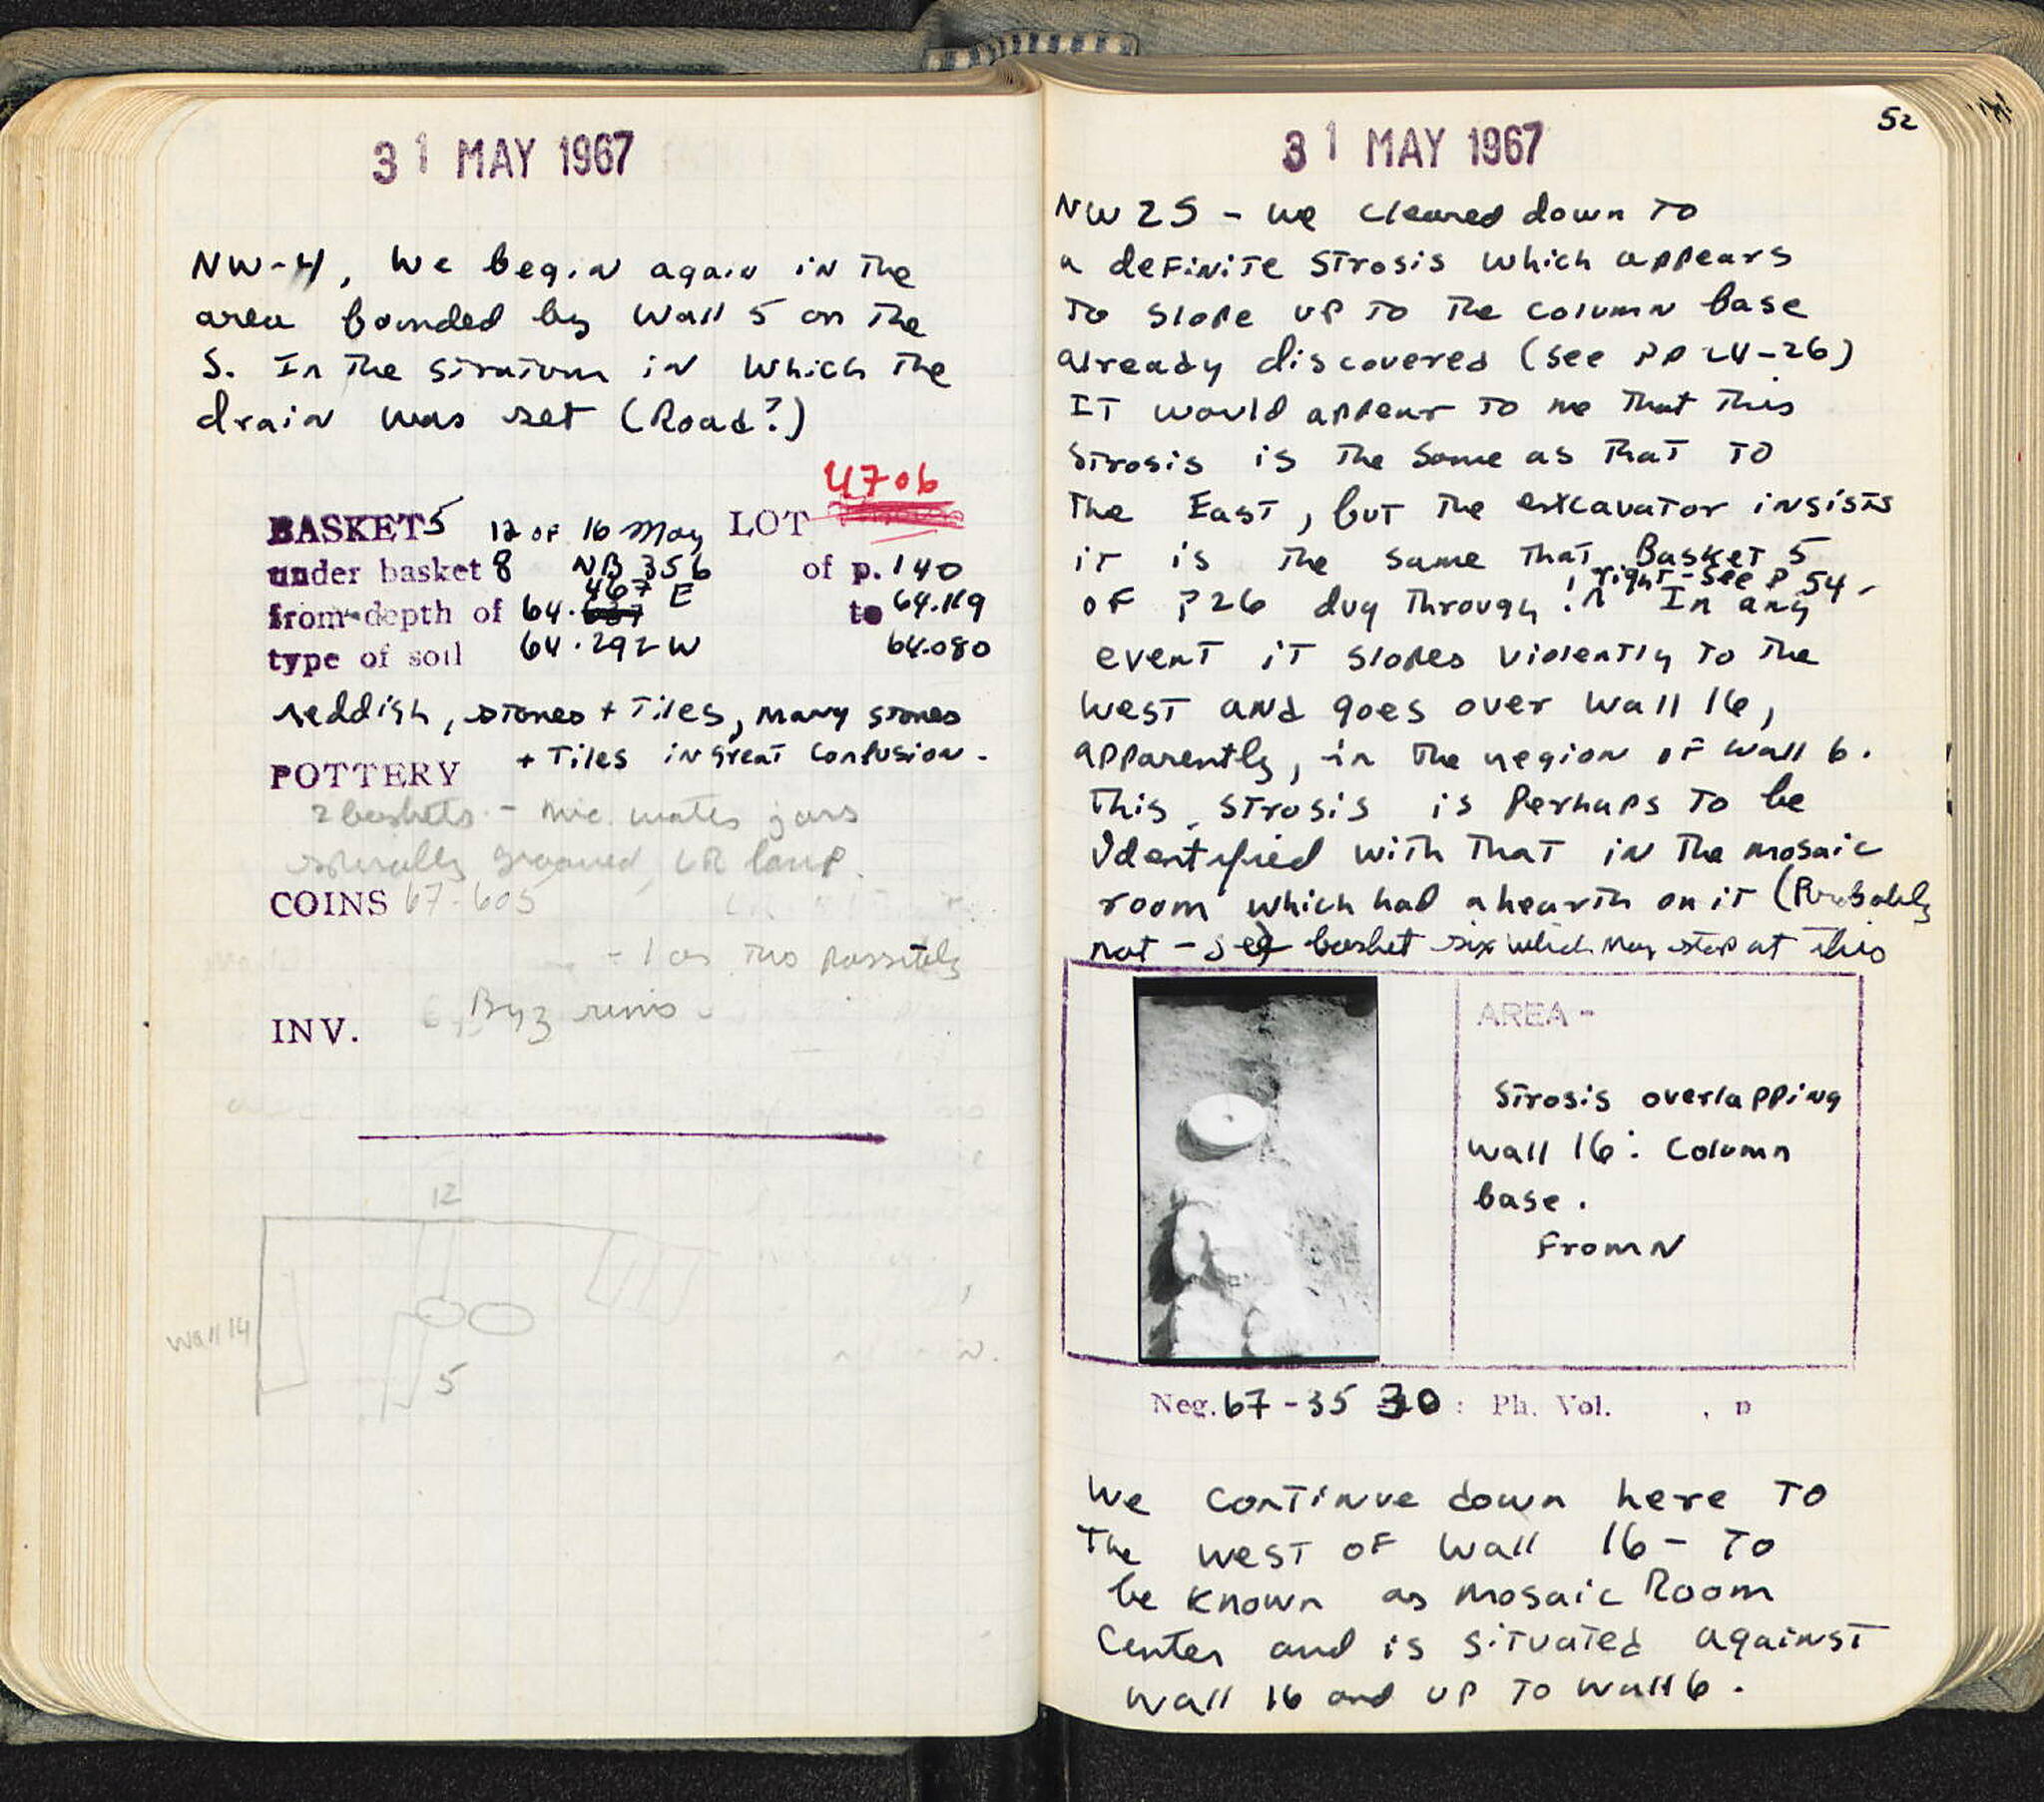 31 MAY 1967
NW-4, We begin again in the
area bounded by Wall 5 on the
S. In the stratum in which the
drain was set (Road?)
4706
BASKET 5 12 of 16 May LOT
under basket 8 NB 356 of p. 140
467 E
from depth of 64. to 64.119
type of soil 64.292 W 64.080
reddish, stones + Tiles, many stones
+ Tiles in great confusion.
POTTERY
2 baskets - mic. water jars
spirally grooved, LR lamp.
COINS 67-605
- 1 or two possibly
Byz rims
INV.
12
Wall 14
5
52
31 MAY 1967
NW 25 - we cleared down to
a definite strosis which appears
to slope up to the column base
already discovered (see pp 24-26)
IT would appear to me that this
strosis is the same as that to
the East, but the excavator insists
it is the same that Basket 5
! right - see p 54 -
of p26 dug through! In any
event it slopes violently to the
west and goes over wall 16,
apparently, in the region of wall 6.
This strosis is perhaps to be
Identified with that in the mosaic
room which had a hearth on it (Probably
not - see basket six which may stop at this
AREA -
Strosis overlapping
wall 16: Column
base.
From N
Neg. 67-35 30 : Ph. Vol. , p
We continue down here to
The west of wall 16 - to
be known as Mosaic Room
Center and is situated against
wall 16 and up to wall 6.